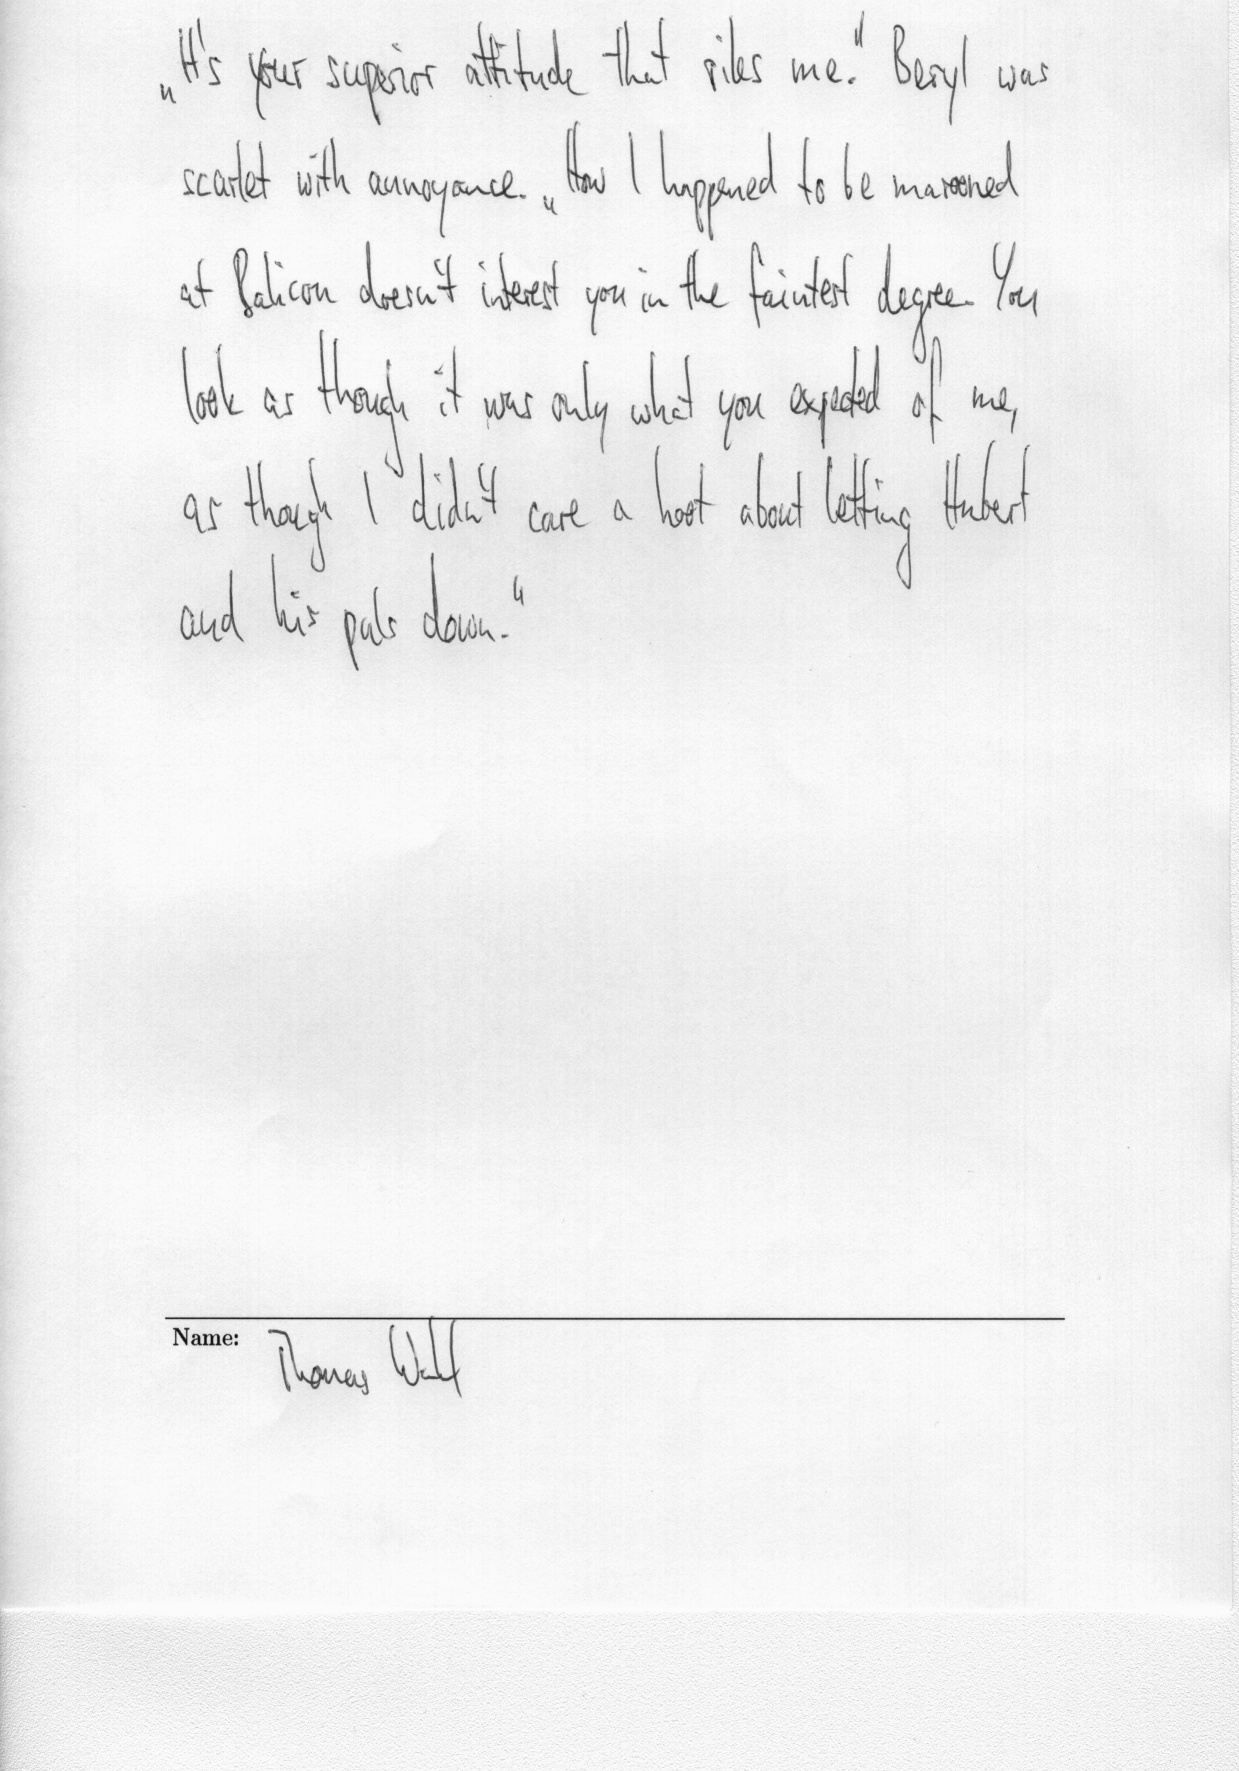 „It's your superior attitude that riles me." Beryl was
scarlet with annoyance. „How I happened to be marooned
at Balicon doesn't interest you in the faintest degree. You
look as though it was only what you expected of me,
as though I didn't care a hoot about letting Hubert
and his pals down."
Name: Thomas